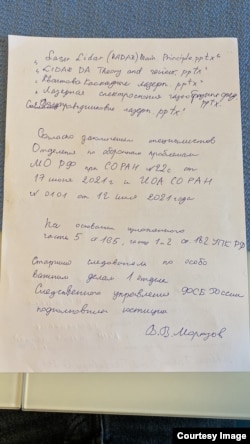 "Laser Lidar (LADAR) Basic Principle.pptx"
"LIDAR DA Theory and review.pptx"
"Квантово Каскадные лазеры.pptx"
"Лазерная спектроскопия газообразных сред.pptx"
лазеры.pptx"
Согласно заключениям специалистов
Отделения по оборонным проблемам
МО РФ при СО РАН №22с от
17 июня 2021 г. и ИОА СО РАН
№ 0101 от 12 июля 2021 года
На основании изложенного
часть 5 ст 105, ч 1-2 ст 182 УПК РФ
Старший следователь по особо
важным делам 1 отдела
Следственного управления ФСБ России
подполковник юстиции
В.В. Морозов
Courtesy Image